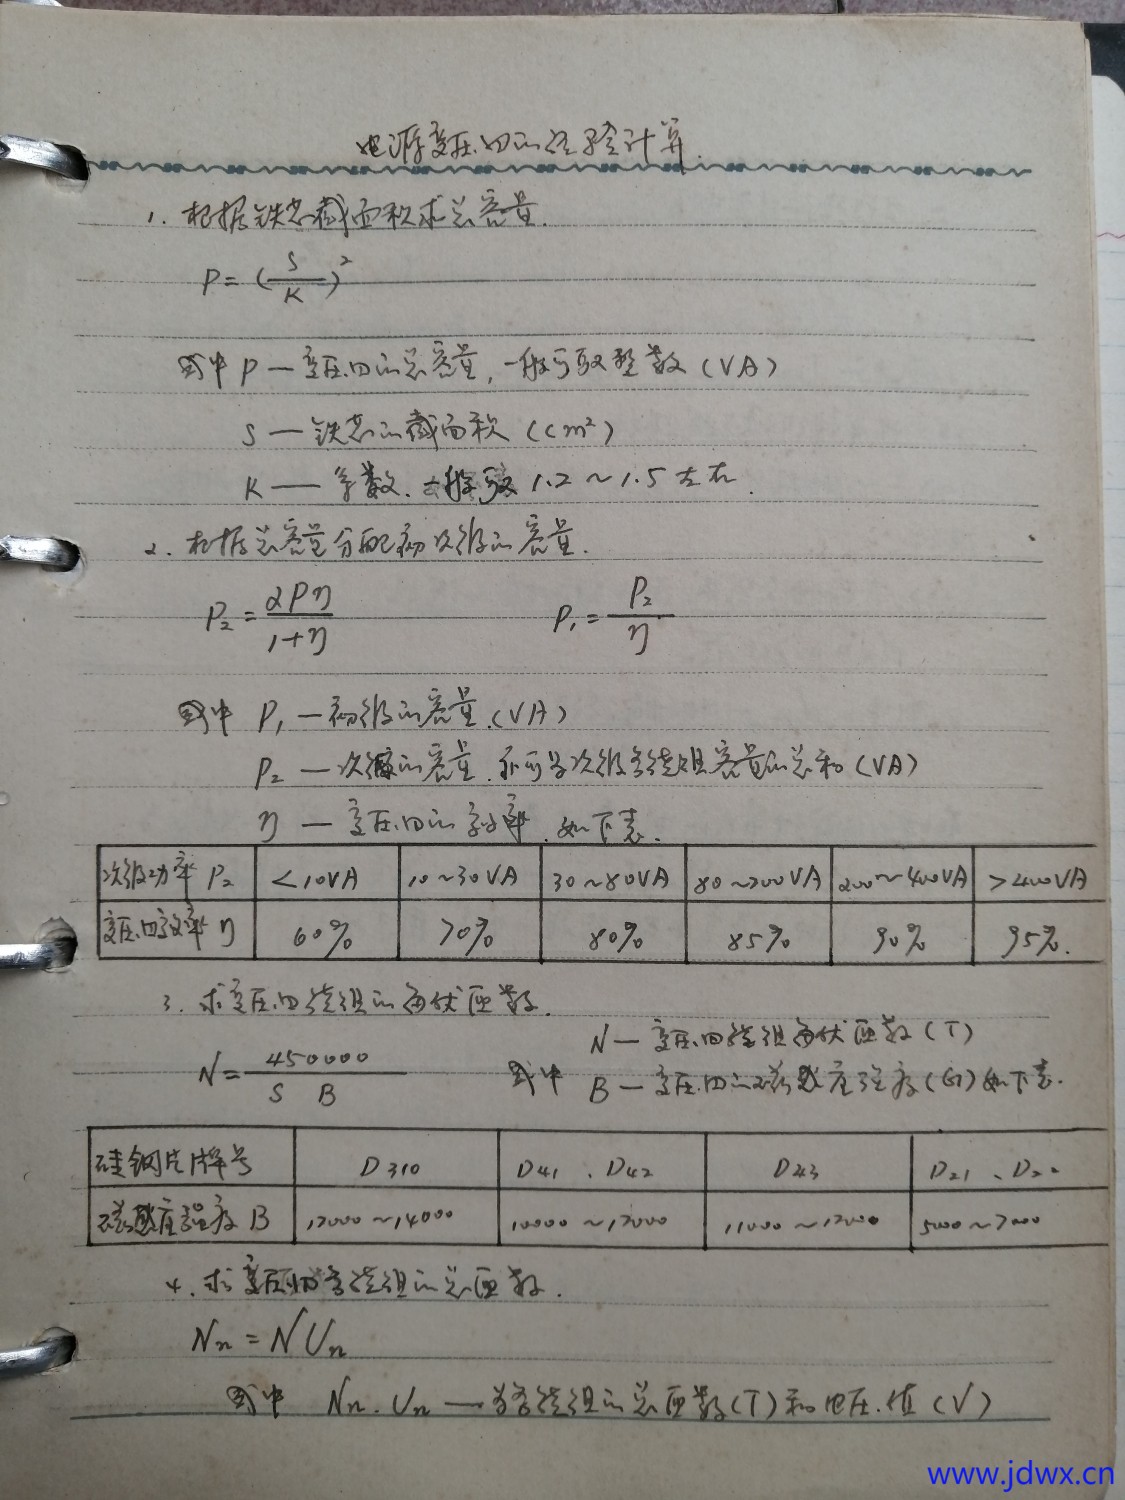 电源变压四的经验计算.
1. 根据铁芯截面积求总容量.
P=(S/K)²
式中 P — 变压四的总容量,一般可取整数(VA)
S — 铁芯的截面积(cm²)
K — 系数.一般取1.2~1.5左右.
2. 根据总容量分配初次级的容量.
P₂=2Pη/1+η P₁=P₂/η
式中 P₁ — 初级的容量.(VA)
P₂ — 次级的容量.即可为次级各绕组容量的总和(VA)
η — 变压四的效率.如下表.
次级功率 P₂ <10VA 10~30VA 30~80VA 80~200VA 200~400VA >400VA
变压四效率 η 60% 70% 80% 85% 90% 95%.
3. 求变压四绕组的每伏匝数.
N=450000/S B
N — 变压四绕组每伏匝数(T)
式中 B — 变压四的磁感应强度(G)如下表.
硅钢片牌号 D310 D41、D42 D43 D21、D22
磁感应强度 B 12000~14000 10000~12000 11000~12000 5000~7000
4. 求变压四各绕组的总匝数.
Nn=NUn
式中 Nn.Un — 为各绕组的总匝数(T)和电压值(V)
www.jdwx.cn